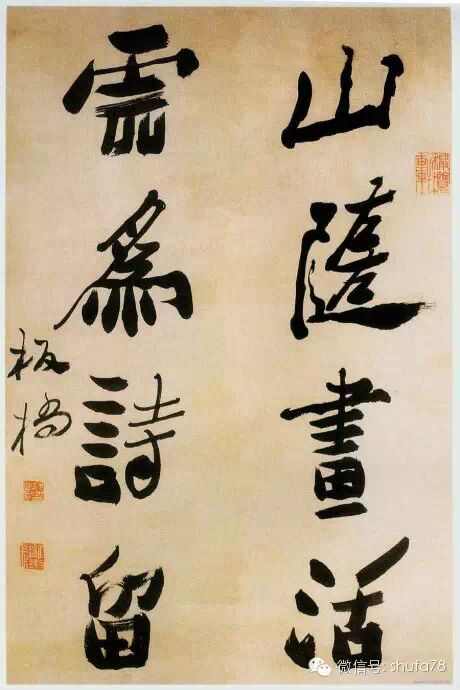 山隨畫活
雲爲詩留
板橋
微信号: shufa78